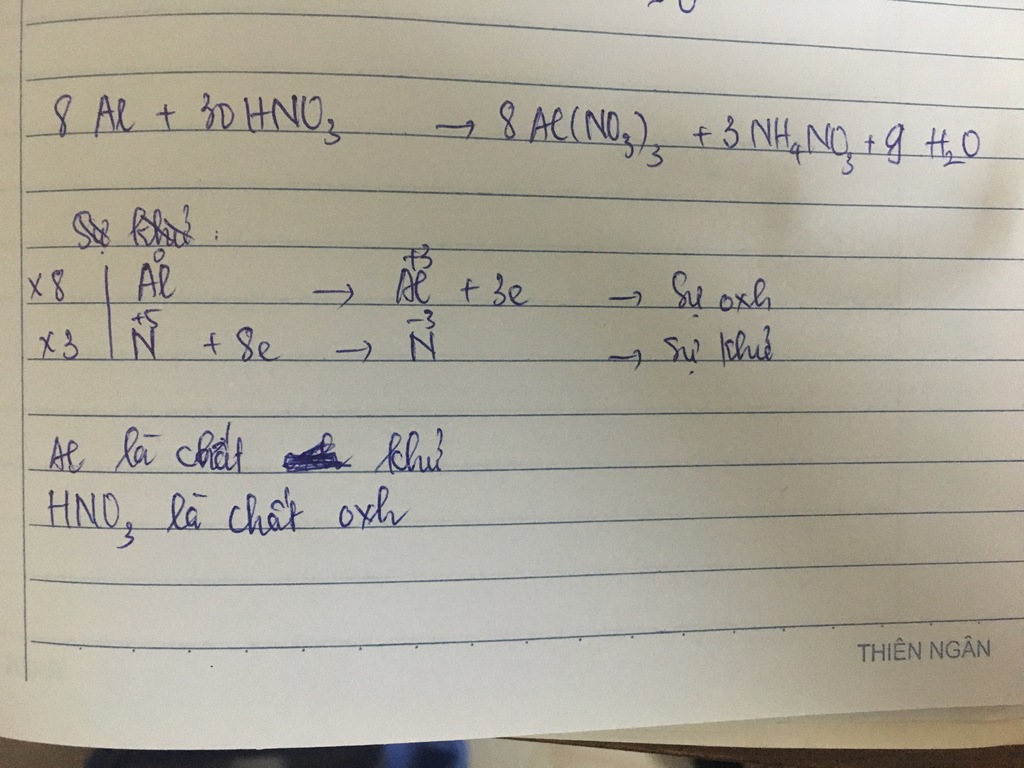 8 Al + 30 HNO₃ → 8 Al(NO₃)₃ + 3 NH₄NO₃ + 9 H₂O
Sự khử:
x8 | Al⁰ → Al⁺³ + 3e → Sự oxh
x3 | N⁺⁵ + 8e → N⁻³ → Sự khử
Al là chất khử
HNO₃ là chất oxh
THIÊN NGÂN